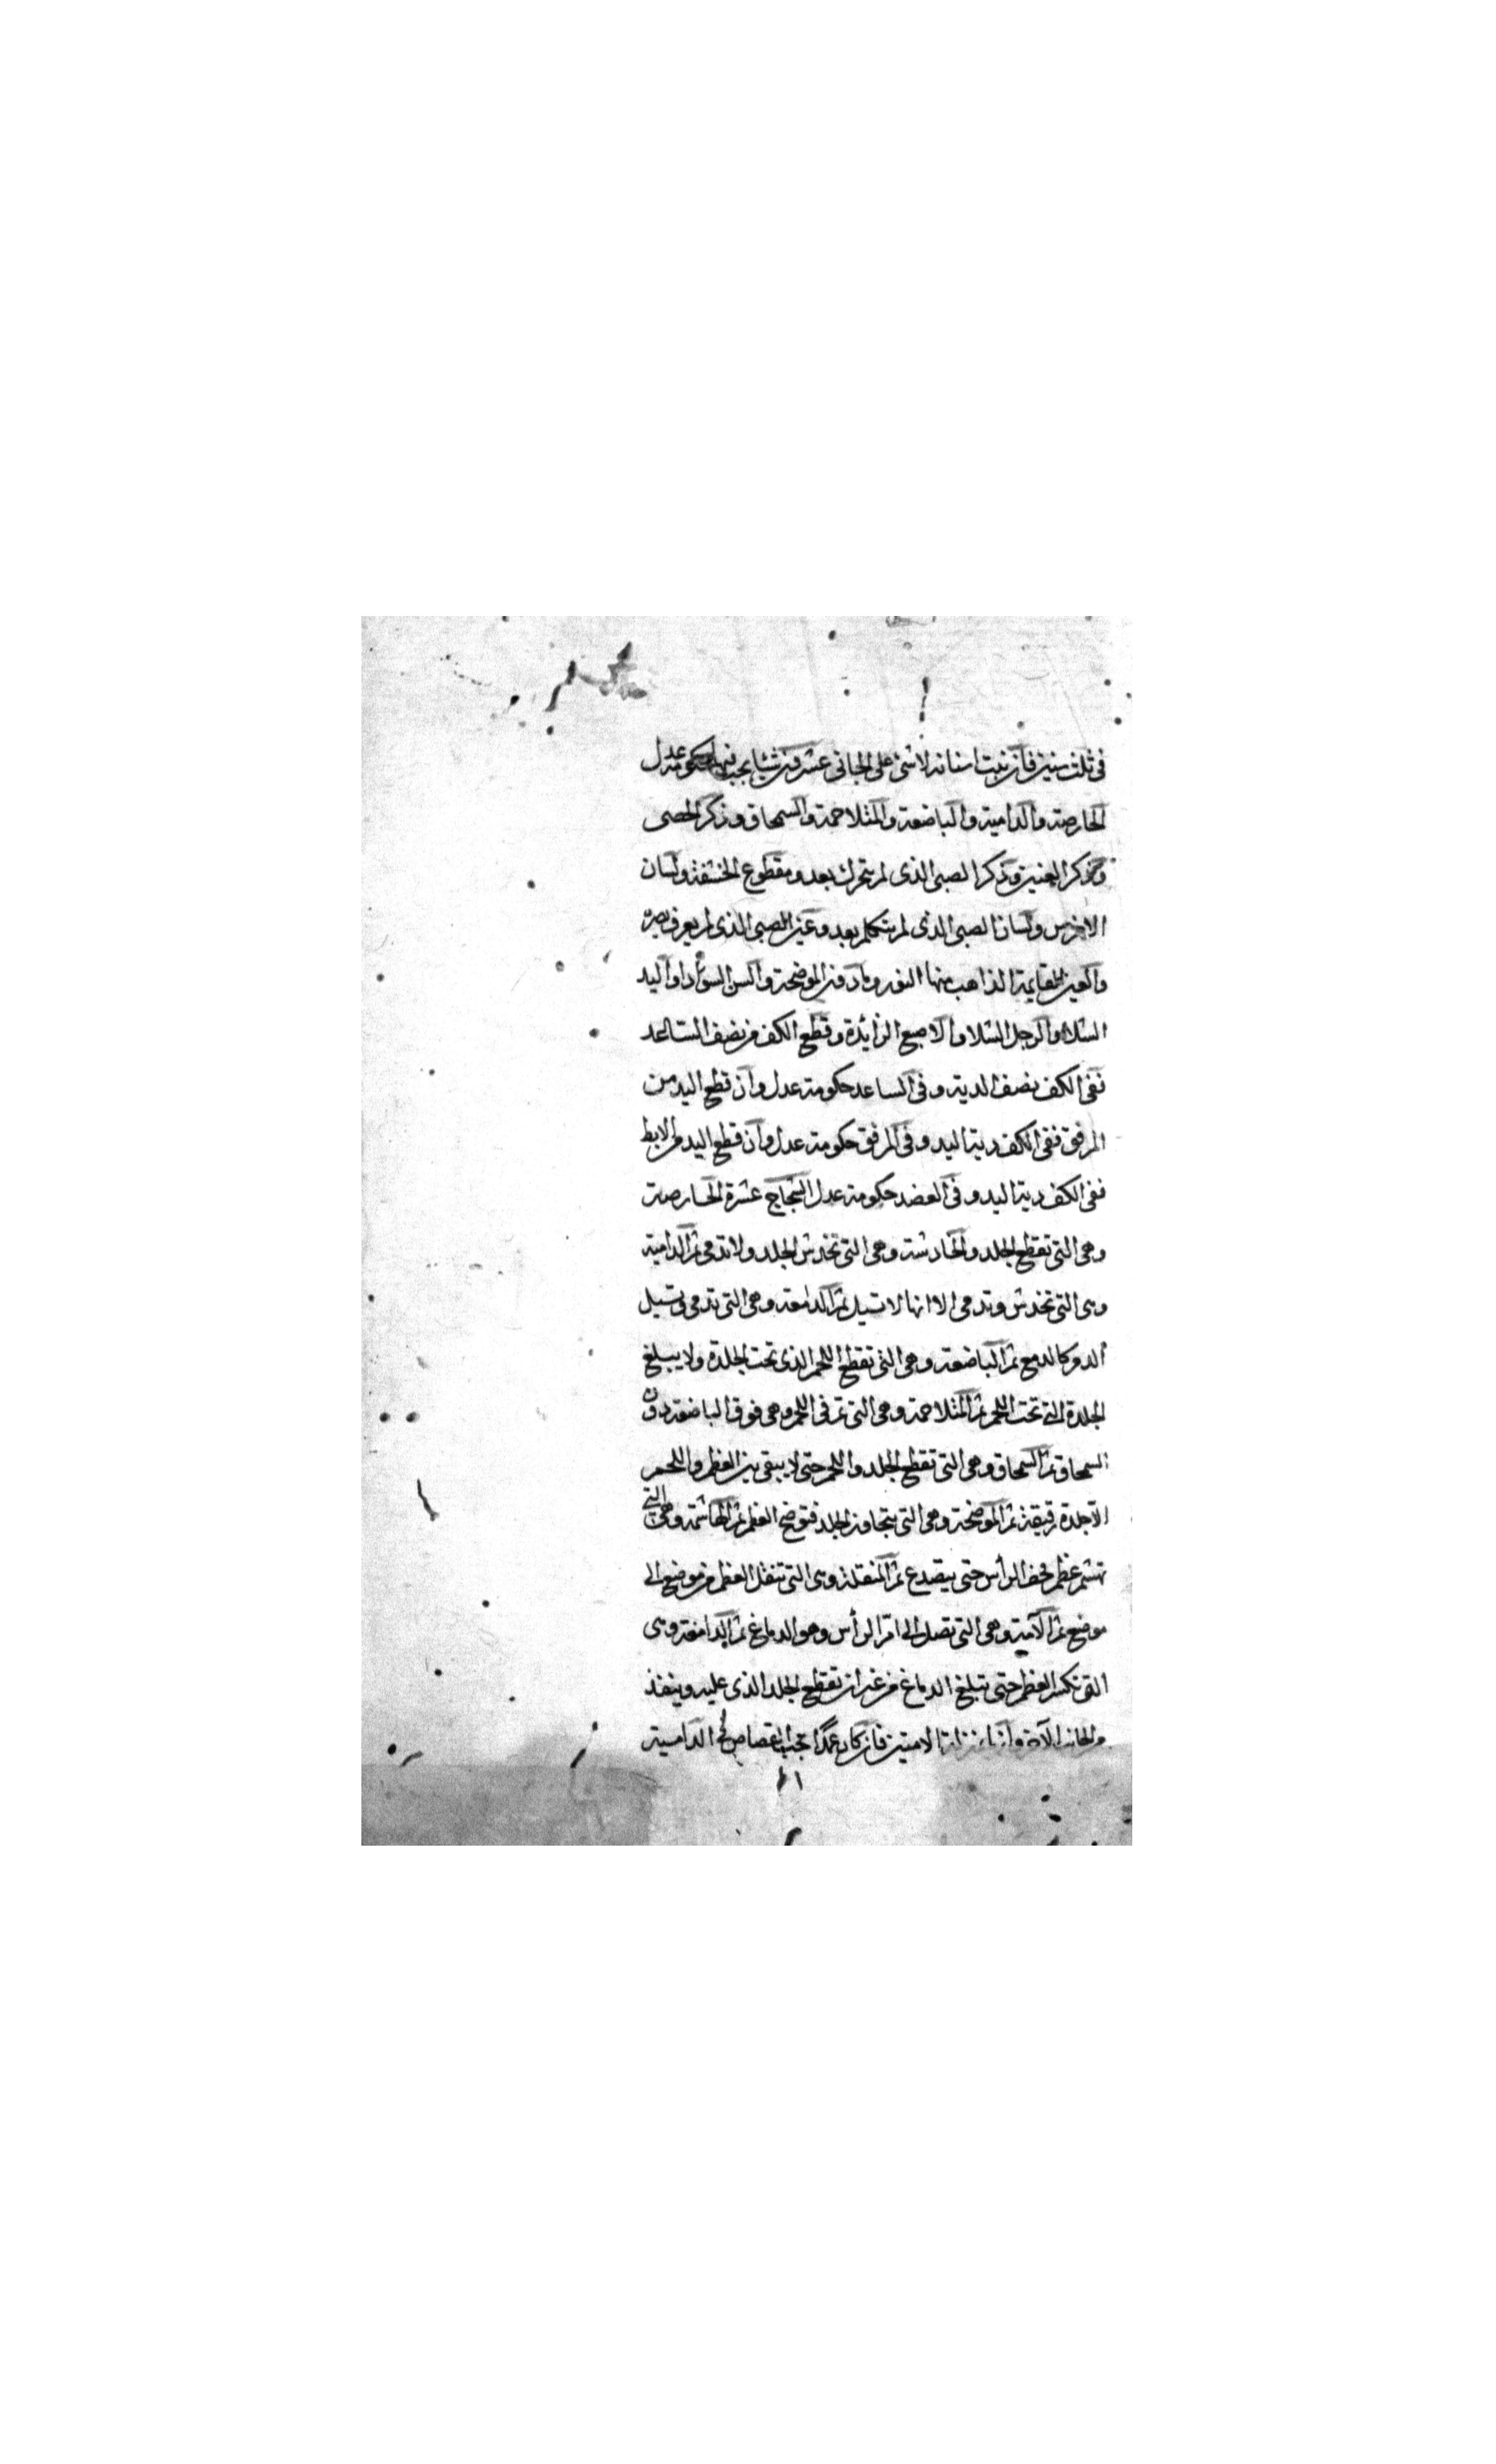 في ثلث سنين فان نبتت اسنانه لا شئ على الجاني عشرون شيئا يجب فيها حكومة عدل
الحارصة والدامية والباضعة والمتلاحمة والسمحاق وذكر الخصى
وذكر العنين وذكر الصبي الذي لم يتحرك بعد ومقطوع الحشفة ولسان
الاخرس ولسان الصبي الذي لم يتكلم بعد وعين الصبي الذي لم يعرف بصره
والعين القايمة الذاهب منها النور وما دون الموضحة والسن السوداء واليد
الشلا والرجل الشلا والاصبع الزائدة وقطع الكف من نصف الساعد
ففي الكف نصف الدية وفي الساعد حكومة عدل وان قطع اليد من
المرفق ففي الكف دية اليد وفي المرفق حكومة عدل وان قطع اليد من الابط
ففي الكف دية اليد وفي العضد حكومة عدل الشجاج عشرة الحارصة
وهي التي تقطع الجلد والخادشة وهي التي تخدش الجلد ولا تدمى ثم الدامية
وهى التي تخدش وتدمى الا انها لا تسيل ثم الدامعة وهي التي تدمى وتسيل
الدم كالدمع ثم الباضعة وهي التي تقطع اللحم الذي تحت الجلدة ولا يبلغ
الجلدة التي تحت اللحم ثم المتلاحمة وهي التي تمر في اللحم وهي فوق الباضعة دون
السمحاق ثم السمحاق وهي التي تقطع الجلد واللحم حتى لا يبقى بين العظم واللحم
الا جلدة رقيقة ثم الموضحة وهي التي يتجاوز الجلد فتوضح العظم ثم الهاشمة وهي التي
تهشم عظم قحف الرأس حتى يتصدع ثم المنقلة وهى التي تنقل العظم من موضع الى
موضع ثم الآمة وهي التي تصل الى ام الرأس وهو الدماغ ثم الدامغة وهى
التي تكسر العظم حتى تبلغ الدماغ من غير ان تقطع الجلد الذي عليه وينفذ
الامتين فان كان عمدًا يجب القصاص في الدامية